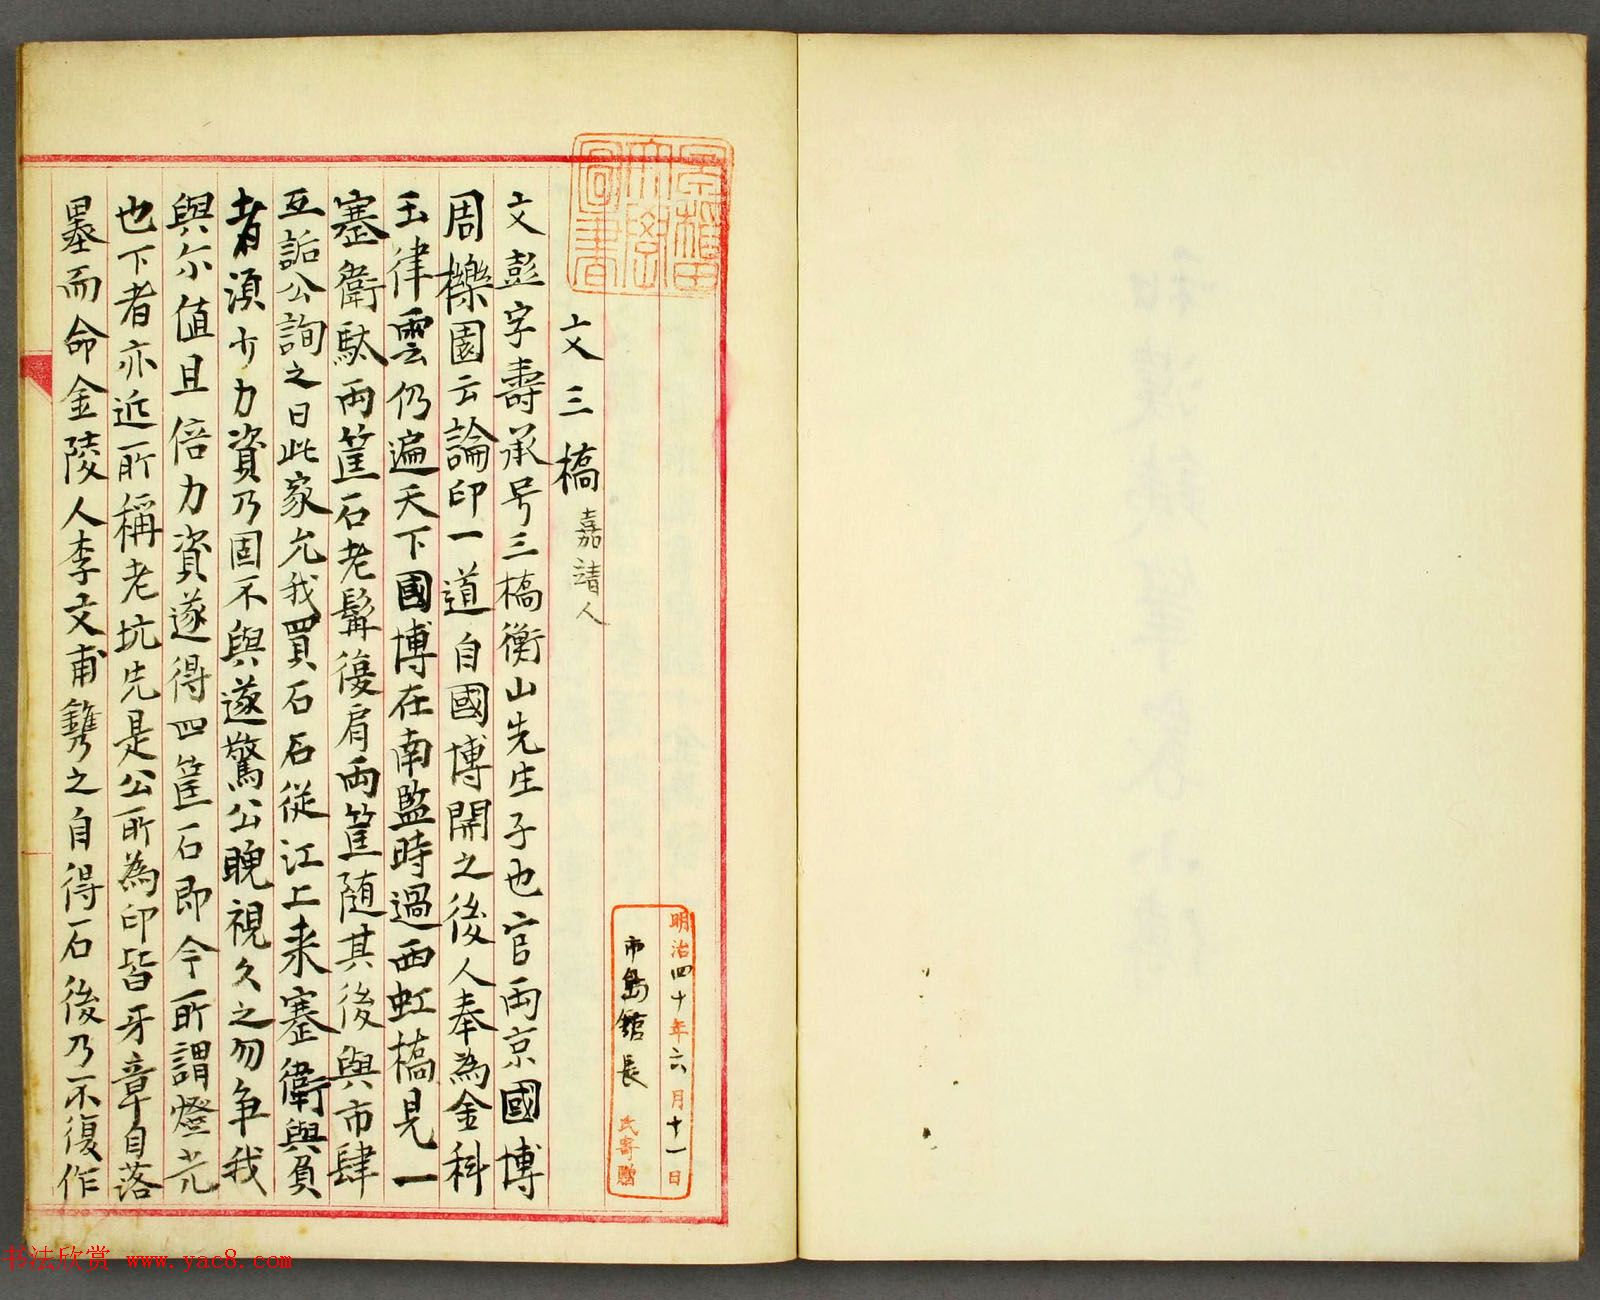 早稲田
大學
圖書
明治四十年六月十一日
市島舘長 氏寄贈
文三橋 嘉靖人
文彭字壽承号三橋衡山先生子也官両京國博
周櫟園云論印一道自國博開之後人奉為金科
玉律雲仍遍天下國博在南監時過西虹橋見一
蹇衛馱両筐石老髯復肩両筐随其後與市肆
互詬公詢之曰此家允我買石石從江上来蹇衛與負
者須少力資乃固不與遂驚公睨視久之勿争我
與尔值且倍力資遂得四筐石即今所謂燈光
也下者亦近所稱老坑先是公所為印皆牙章自落
墨而命金陵人李文甫鐫之自得石後乃不復作
书法欣赏 www.yac8.com